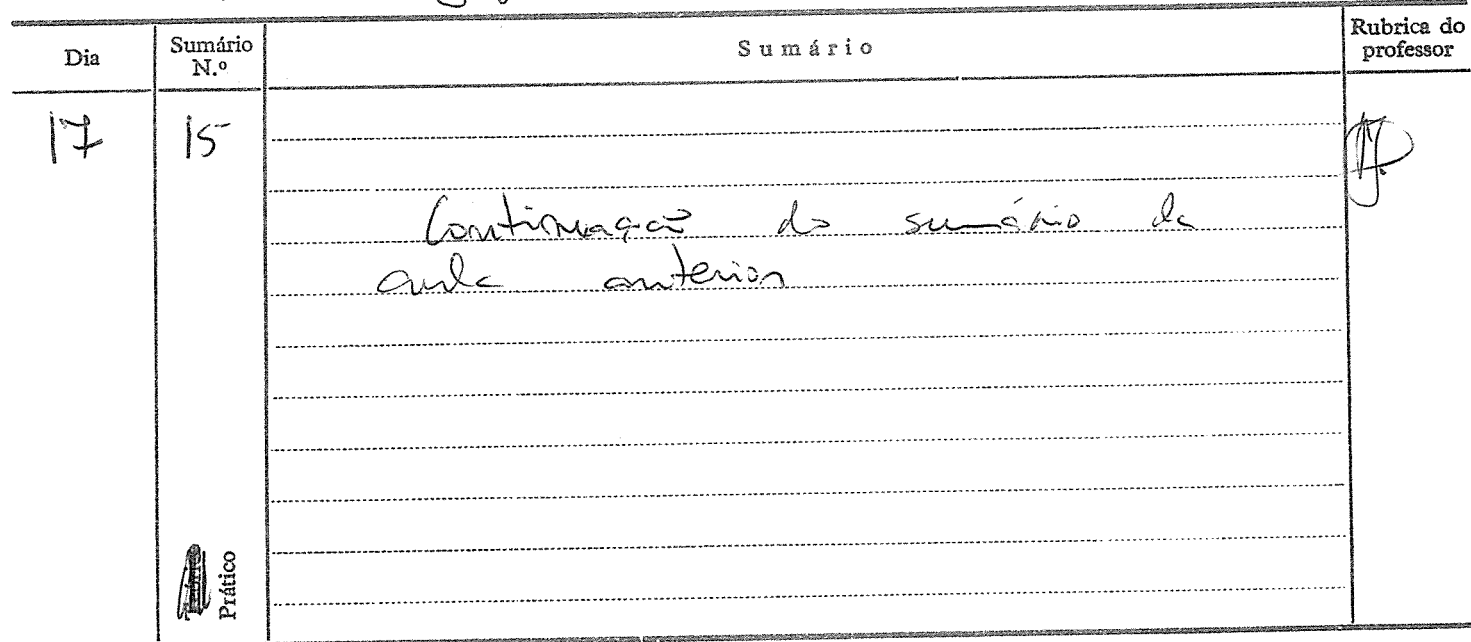 Dia
Sumário N.º
Sumário
Rubrica do professor
17
15
Continuação do sumário da
aula anterior
Prático